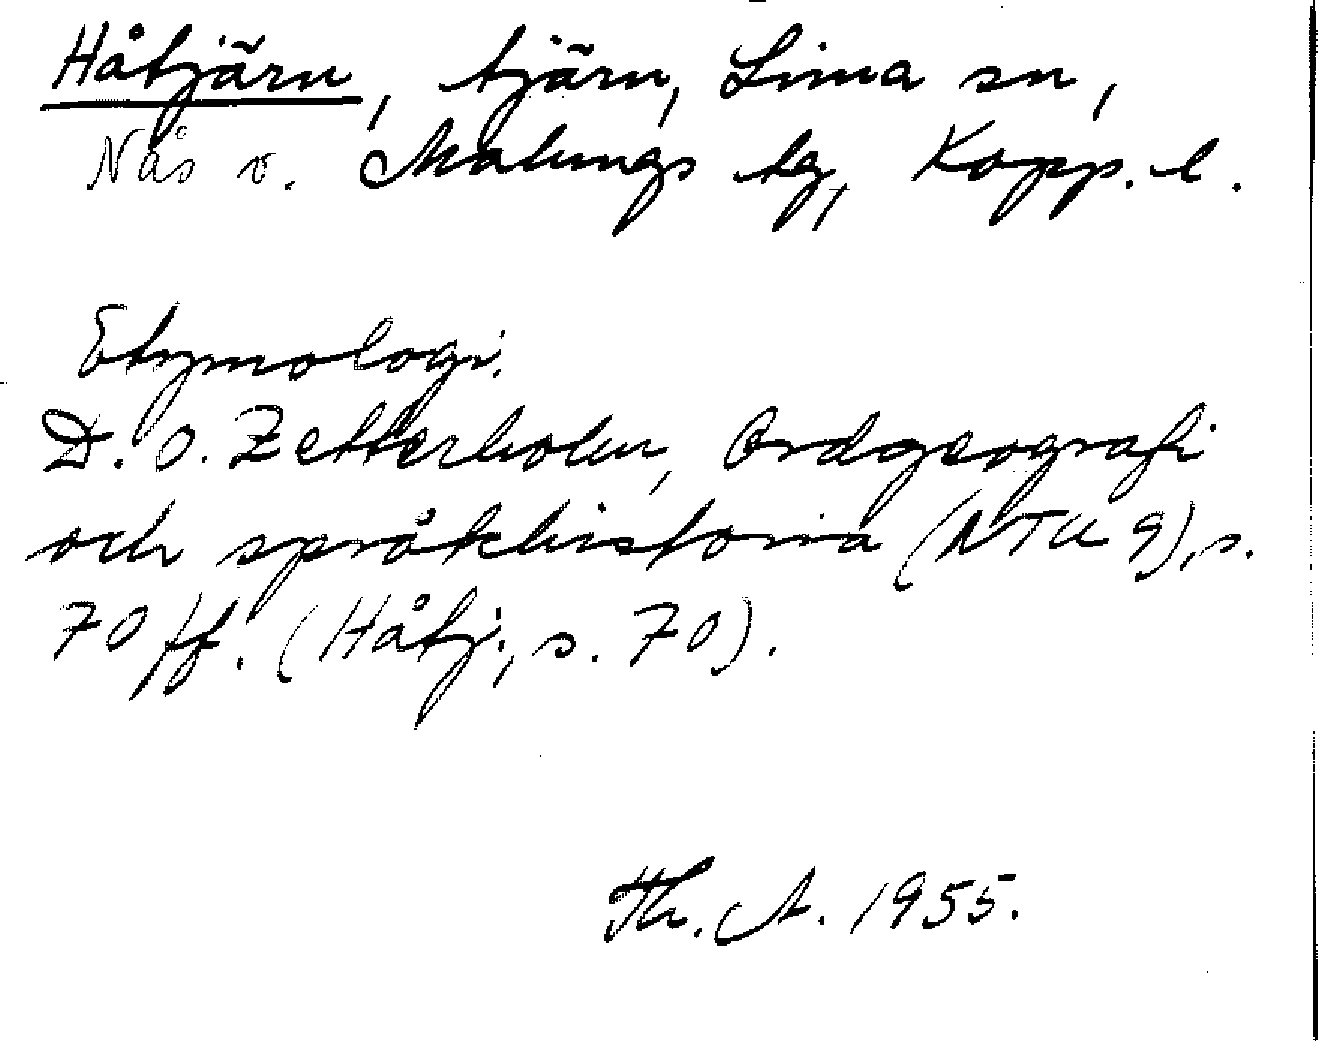 Håtjärn, tjärn, Lima sn,
Nås o. Malungs tg, Kopp. l.
Etymologi.
D. O. Zetterholm, Ordgeografi
och språkhistoria (NTU 9), s.
70 ff. (Håtj., s. 70).
Th. A. 1955.